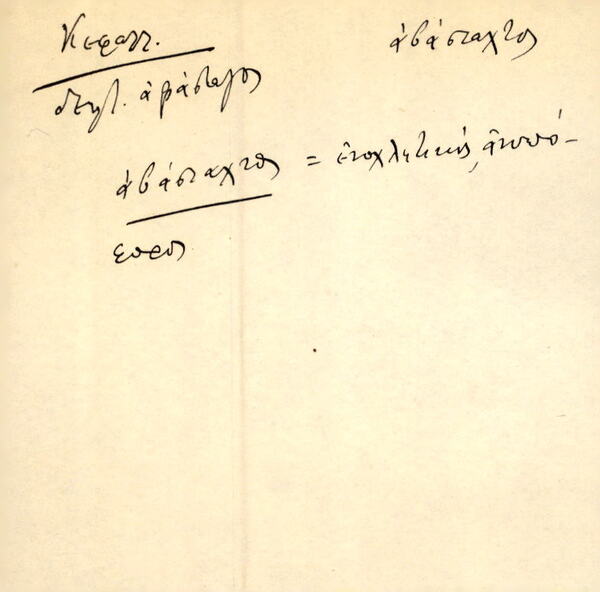 Κεφαλλ. ἀβάσταχτος
δελτ. ἀβάσταγος
ἀβάσταχτος = ἐνοχλητικός, ἀνυπό-
φορος